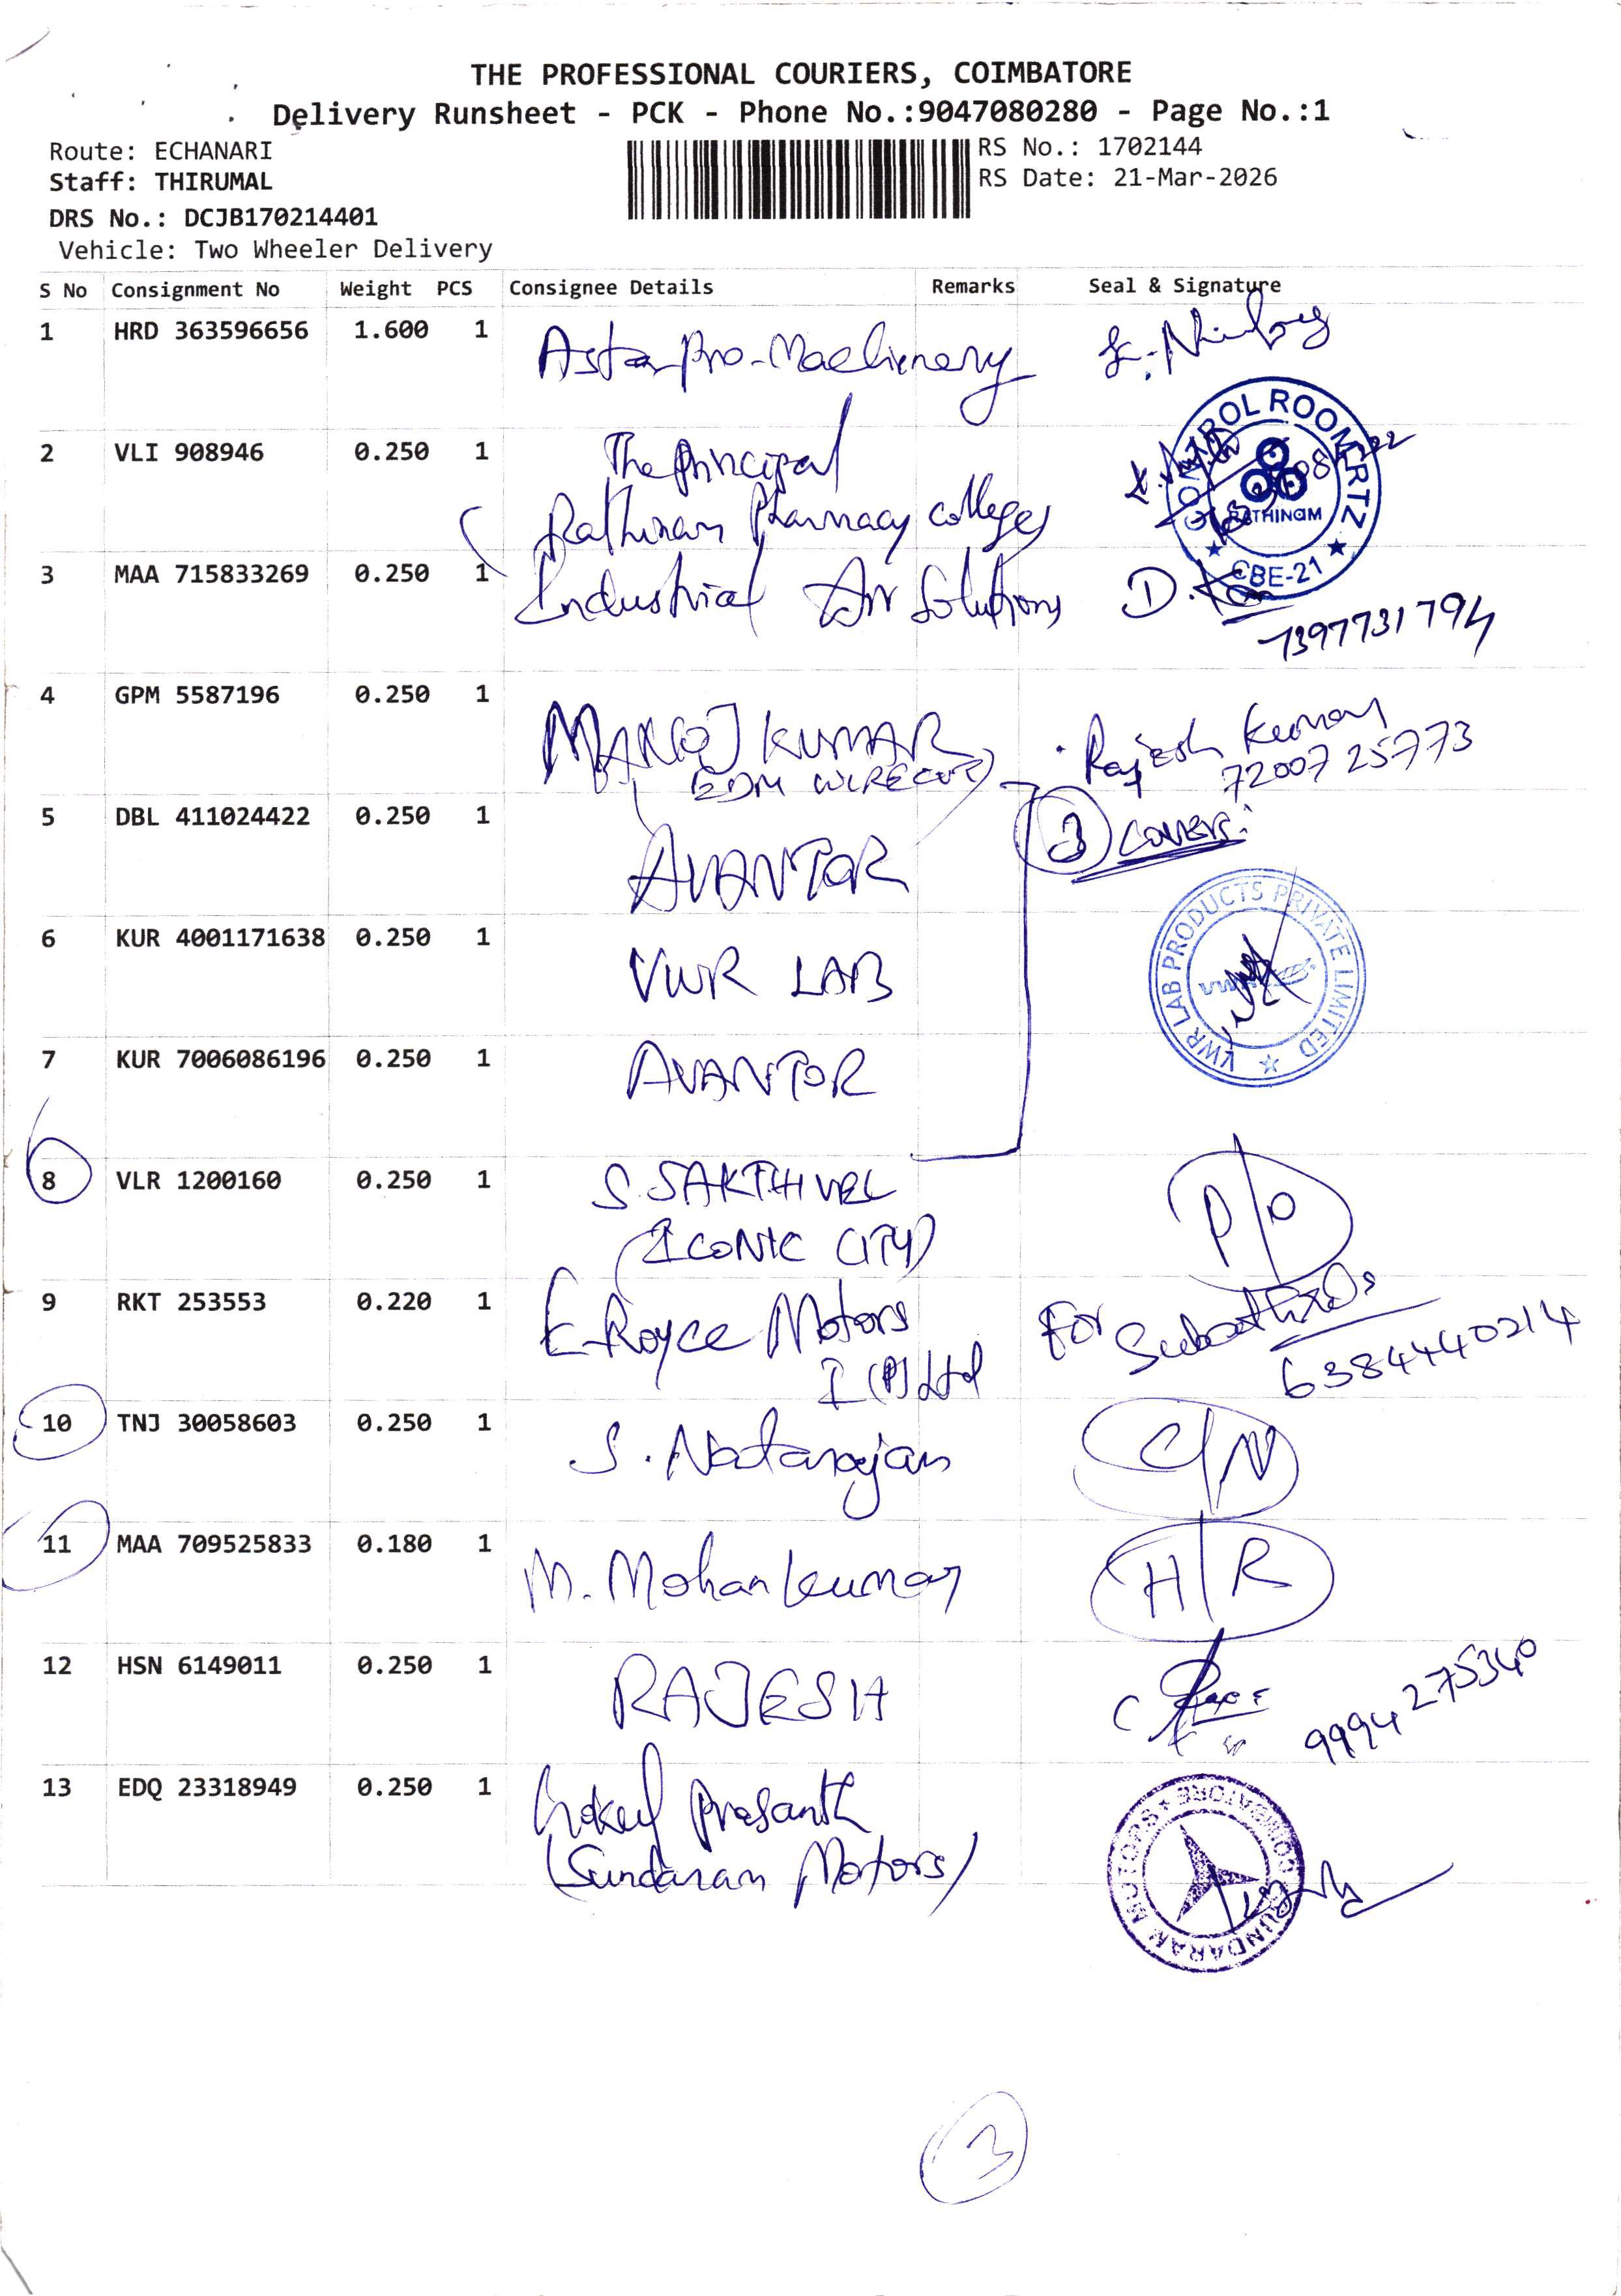 THE PROFESSIONAL COURIERS, COIMBATORE
Delivery Runsheet - PCK - Phone No.:9047080280 - Page No.:1
Route: ECHANARI
RS No.: 1702144
Staff: THIRUMAL
RS Date: 21-Mar-2026
DRS No.: DCJB170214401
Vehicle: Two Wheeler Delivery
S No Consignment No Weight PCS Consignee Details Remarks Seal & Signature
1 HRD 363596656 1.600 1 Asta Pro-Machinery
2 VLI 908946 0.250 1 The Principal
Rathinam Pharmacy college
CONTROL ROOM RTZ
RATHINAM
CBE-21
3 MAA 715833269 0.250 1 Industrial Air Solutions
7397731794
4 GPM 5587196 0.250 1 MANOJ KUMAR Rajesh Kumar
(EDM WIRECUT) 72007 25773
5 DBL 411024422 0.250 1 AVANTOR 3 covers.
6 KUR 4001171638 0.250 1 VWR LAB
VWR LAB PRODUCTS PRIVATE LIMITED
VWR
7 KUR 7006086196 0.250 1 AVANTOR
8 VLR 1200160 0.250 1 S. SAKTHIVEL P/O
(ICONIC CITY)
9 RKT 253553 0.220 1 E-Royce Motors For
I (P) Ltd 6384440214
10 TNJ 30058603 0.250 1 S. Natarajan C/N
11 MAA 709525833 0.180 1 M. Mohankumar H/R
12 HSN 6149011 0.250 1 RAJESH 9994275340
13 EDQ 23318949 0.250 1 Prasanth
(Sundaram Motors)
SUNDARAM MOTORS COIMBATORE
3